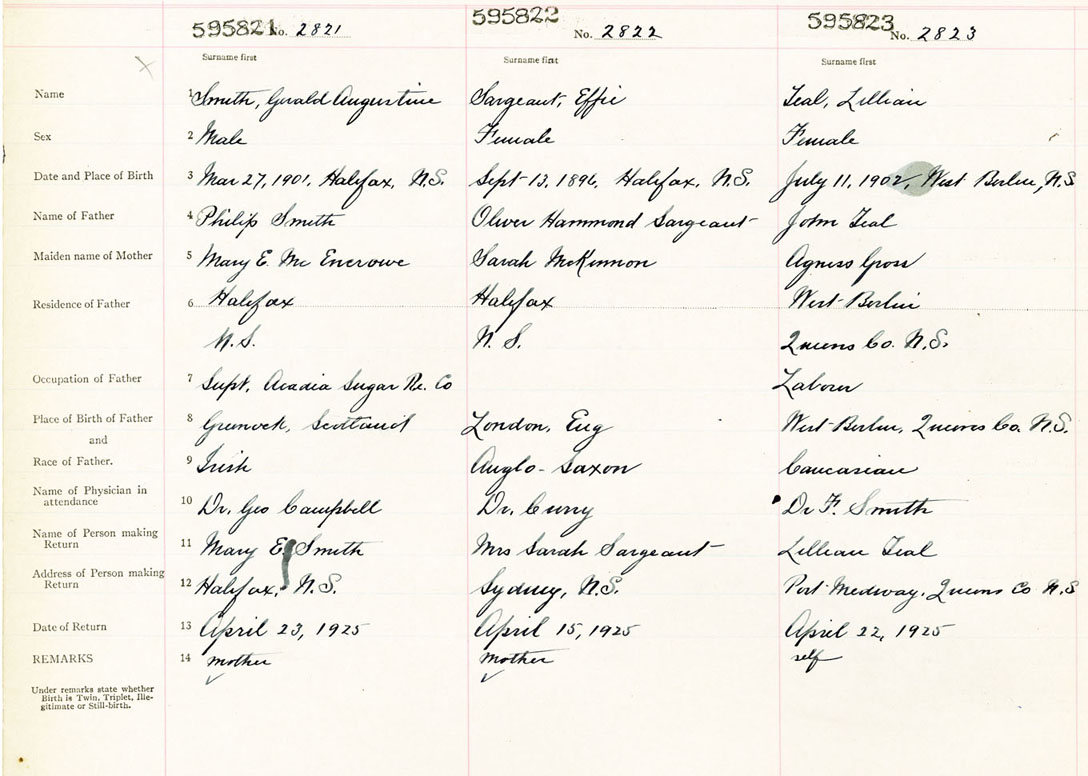 595821 No. 2821 595822 No. 2822 595823 No. 2823
Surname first Surname first Surname first
Name 1 Smith, Gerald Augustine Sargeant, Effie Teal, Lillian
Sex 2 Male Female Female
Date and Place of Birth 3 Mar 27, 1901, Halifax, N.S. Sept 13, 1896, Halifax, N.S. July 11, 1902, West Berlin, N.S
Name of Father 4 Philip Smith Oliver Hammond Sargeant John Teal
Maiden name of Mother 5 Mary E. Mc Sarah McKinnon Agness Gross
Residence of Father 6 Halifax Halifax West Berlin
N.S. N.S. Queens Co. N.S.
Occupation of Father 7 Supt, Acadia Sugar Re. Co Labour
Place of Birth of Father 8 Greenock, Scotland London, Eng West Berlin, Queens Co. N.S.
and
Race of Father. 9 Irish Anglo-Saxon Caucasian
Name of Physician in
attendance 10 Dr. Geo Campbell Dr. Curry Dr F. Smith
Name of Person making
Return 11 Mary E. Smith Mrs Sarah Sargeant Lillian Teal
Address of Person making
Return 12 Halifax, N.S. Sydney, N.S. Port Medway, Queens Co N.S
Date of Return 13 April 23, 1925 April 15, 1925 April 22, 1925
REMARKS 14 mother mother self
Under remarks state whether
Birth is Twin, Triplet, Ille-
gitimate or Still-birth.